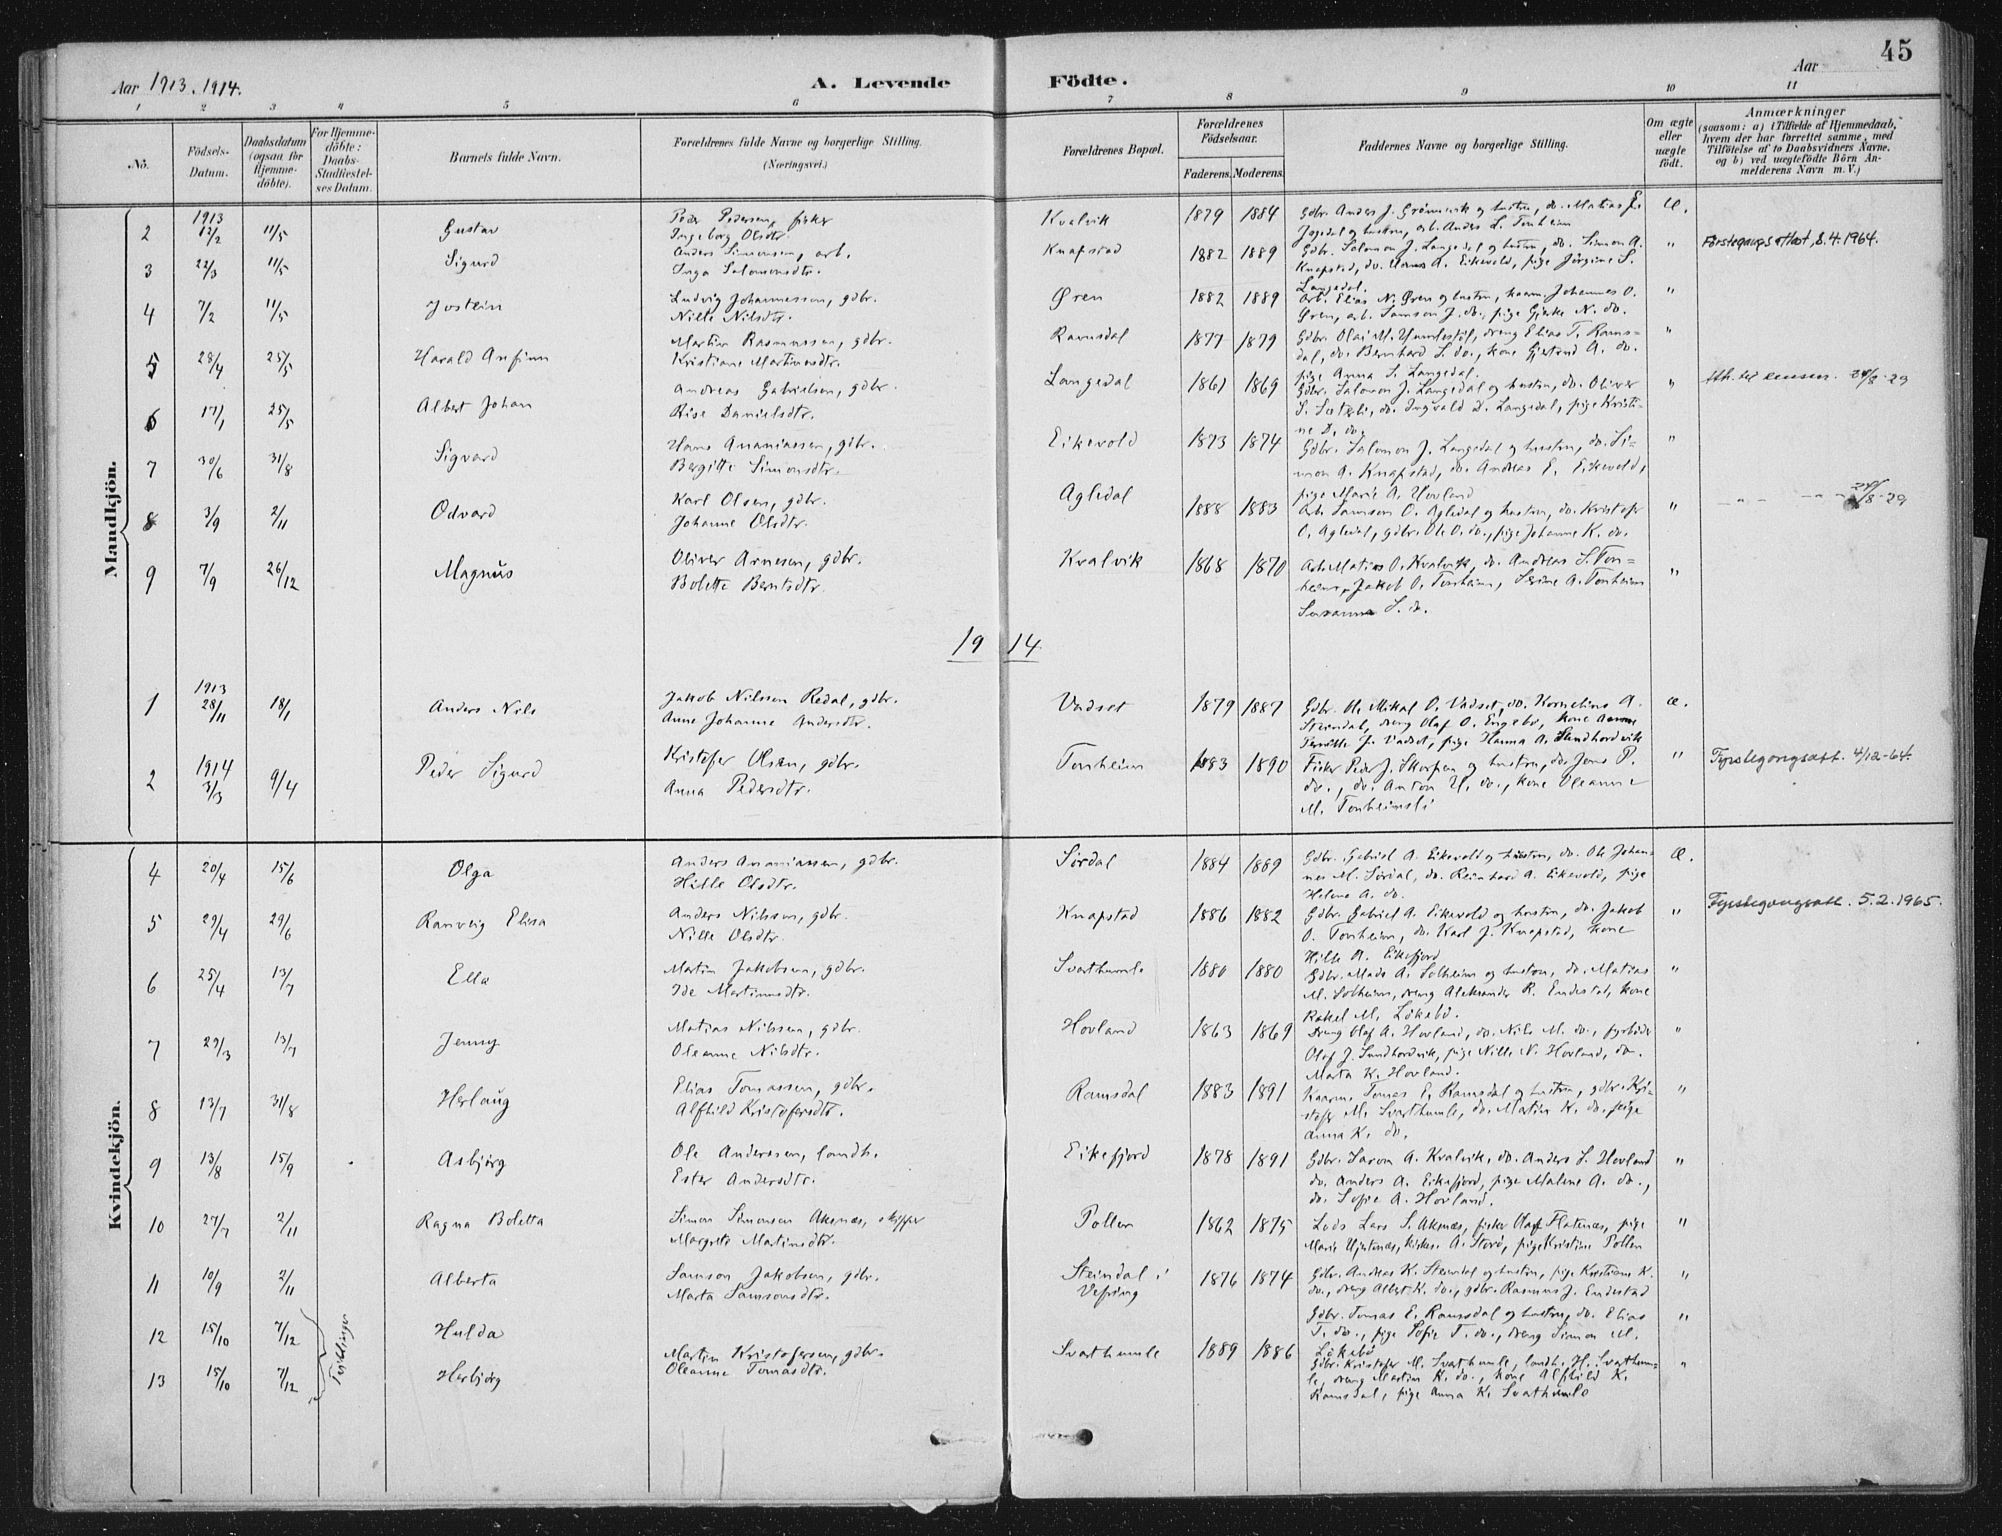 45
Aar 1913. 1914.
A. Levende Födte.
Aar
1 2 3 4 5 6 7 8 9 10 11
No.
Födsels-Datum.
Daabsdatum (ogsaa for Hjemme-döbte).
For Hjemme-döbte: Daabs-Stadfæstel-ses Datum.
Barnets fulde Navn.
Forældrenes fulde Navne og borgerlige Stilling. (Næringsvei.)
Forældrenes Bopæl.
Forældrenes Födselsaar.
Faderens. Moderens.
Faddernes Navne og borgerlige Stilling.
Om ægte eller uægte födt.
Anmærkninger (saasom: a) i Tilfælde af Hjemmedaab, hvem der har forrettet samme, med Tilföielse af to Daabsvidners Navne, og b) ved uægtefödte Börn An-melderens Navn m. V.)
Mandkjön.
2 1913 12/2 11/5 Gustav
Peder Pedersen, fisker
Ingeborg Olsdtr.
Kvalvik 1879 1884
Gdbr. Anders J. Grönnevik og hustru, do. Matias
hustru, arb. Anders L. Tonheim
Æ.
3 22/3 11/5 Sigurd
Anders Simonsen, arb.
Inga Salomonsdtr.
Knapstad 1882 1889
Gdbr. Salomon J. Langedal og hustru, do. Simon A.
Knapstad, do. Hans A. Eikevold, pige Jörgine S.
Langedal.
" Förstegangsattest, 8.4.1964.
4 7/2 11/5 Jostein
Ludvig Johannessen, gdbr.
Nille Nilsdtr.
Øren 1882 1889
Arb. Elias N. Øren og hustru, kaarm. Johannes O.
Øren, arb. Samson J. do., pige Gjerke N. do.
"
5 28/4 25/5 Harald Anfinn
Martin Rasmussen, gdbr.
Kristiane Martinusdtr.
Ramsdal 1877 1879
Gdbr. Olai M. Humlestöl, dreng Elias T. Rams=
dal, do. Bernhard S. do., kone Gjertrud A. do.
pige Anna S. Langedal.
"
6 17/1 25/5 Albert Johan
Andreas Gabrielsen, gdbr.
Rise Danielsdtr.
Langedal 1861 1869
Gdbr. Salomon J. Langedal og hustru, do. Oliver
S. do. Ingvald D. Langedal, pige Kristi-
ne D. do.
" Att. til 29/8-29
7 30/6 31/8 Sigvard
Hans Ananiassen, gdbr.
Bergitte Simonsdtr.
Eikevold 1873 1874
Gdbr. Salomon J. Langedal og hustru, do. Si=
mon A. Knapstad, do. Andreas E. Eikevold,
pige Marie A. Hovland
"
8 3/9 2/11 Odvard
Karl Olsen, gdbr.
Johanne Olsdtr.
Agledal 1888 1883
Arb. Samson O. Agledal og hustru, do. Kristofer
O. Agledal, gdbr. Ole O. do., pige Johanne K. do.
" — " — — " — 29/8-29
9 7/9 26/12 Magnus
Oliver Arnesen, gdbr.
Bolette Berntsdtr.
Kvalvik 1868 1870
Arb. Matias O. Kvalvik, do. Andreas S. Ton=
heim, Jakob O. Tonheim, Serine A. Tonheim
Susanna S. do.
"
19 14
1 1913 28/11 18/1 Anders Nils
Jakob Nilssen Redal, gdbr.
Anne Johanne Andersdtr.
Vadset 1879 1887
Gdbr. Ole Mikal O. Vadset, do. Kornelius A.
Steindal, dreng Olaf O. Engebö, kone Anne
Pernille J. Vadset, pige Hanna A. Sundhordvik
æ.
2 1914 3/3 9/4 Peder Sigurd
Kristofer Olsen, gdbr.
Anna Pedersdtr.
Tonheim 1883 1890
Fisker Peder J. Skorpen og hustru, do. Jens P.
do., do. Anton H. do., kone Oleanne
M. Tonheimsli
" Fyrstegongsatt. 4/12-64.
Kvindekjön.
4 20/4 15/6 Olga
Anders Ananiassen, gdbr.
Hille Olsdtr.
Sördal 1884 1889
Gdbr. Gabriel A. Eikevold og hustru, do. Ole Johan-
nes M. Sördal, do. Reinhard A. Eikevold, pige
Helene A. do.
Æ.
5 29/4 29/6 Ranveig Elisa
Anders Nilssen, gdbr.
Nille Olsdtr.
Knapstad 1886 1882
Gdbr. Gabriel A. Eikevold og hustru, do. Jakob
O. Tonheim, do. Karl J. Knapstad, kone
Hille A. Eikefjord
" Fyrstegongsatt. 5.2.1965.
6 25/4 13/7 Ella
Martin Jakobsen, gdbr.
Ide Martinusdtr.
Svarthumle 1880 1880
Gdbr. Mads A. Solheim og hustru, do. Matias
M. Solheim, dreng Aleksander R. Endestad, kone
Rakel M. Lökebö.
"
7 29/3 13/7 Jenny
Matias Nilssen, gdbr.
Oleanne Nilsdtr.
Hovland 1863 1869
Dreng Olaf A. Hovland, do. Nils M. do., fyrböder
Olaf J. Sundhordvik, pige Nille N. Hovland, do.
Marta K. Hovland.
"
8 13/7 31/8 Herlaug
Elias Tomassen, gdbr.
Alfhild Kristofersdtr.
Ramsdal 1883 1891
Kaarm. Tomas E. Ramsdal og hustru, gdbr. Kri-
stofer M. Svarthumle, do. Martin K. do. pige
Anna K. do.
"
9 13/8 15/9 Asbjörg
Ole Anderssen, landh.
Ester Andersdtr.
Eikefjord 1878 1891
Gdbr. Saron A. Kvalvik, do. Anders S. Hovland
do. Anders A. Eikefjord, pige Malene A. do.,
do. Sofie A. Hovland.
"
10 27/7 2/11 Ragna Boletta
Simon Simonsen Aknæs, skipper
Margrete Martinsdtr.
Pollen 1862 1875
Lods Lars S. Aknæs, fisker Olaf Flatenæs, pige
Marie Hjertenæs, kirkes. A. Storö, pige Kristine Pollen
"
11 10/9 2/11 Alberta
Samson Jakobsen, gdbr.
Marta Samsonsdtr.
Steindal i
Vefring
1876 1874
Gdbr. Andreas K. Steindal og hustru, pige Kristiane K.
do., dreng Albert K. do., gdbr. Rasmus J. Endestad
"
12 15/10 7/12 Tvillinger Hulda
Gdbr. Tomas E. Ramsdal og hustru, do. Elias
T. do., pige Sofie T. do., dreng Simon M.
Lökebö
"
Martin Kristofersen, gdbr.
Oleanne Tomasdtr.
Svarthumle 1889 1886
13 15/10 7/12 Herbjörg
Gdbr. Kristofer M. Svarthumle, landh. H. Svarthum-
le, dreng Martin K. do., kone Alfhild K.
Ramsdal, pige Anna K. Svarthumle
"